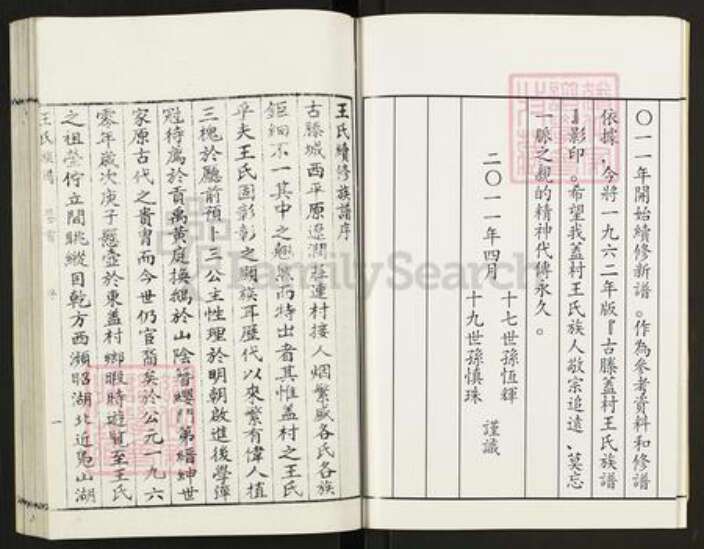 〇一一年開始續修新譜。作為參考資料和修譜
依據，今將一九六二年版『古滕蓋村王氏族譜
』影印。希望我蓋村王氏族人敬宗追遠、莫忘
一脈之親的精神代傳永久。
二〇一一年四月
十七世孫恆輝
十九世孫慎珠
謹識
王氏續修族譜序
古滕城西平原遼濶莊連村接人烟繁盛各氏各族
鉅細不一其中之翹然而特出者其惟蓋村之王氏
乎夫王氏固彰彰之顯族耳歷代以來繁有偉人植
三槐於廳前預卜三公主性理於明朝啟進後學彈
冠待薦於貢禹黃庭換鵝於山陰簪纓門第縉紳世
家原古代之貴胄而今世仍官裔矣於公元一九六
零年歲次庚子懸壺於東蓋村鄉暇時遊覽至王氏
之祖塋佇立閒眺縱目乾方西瀕昭湖北近鳧山湖
王氏族譜
一
FamilySearch